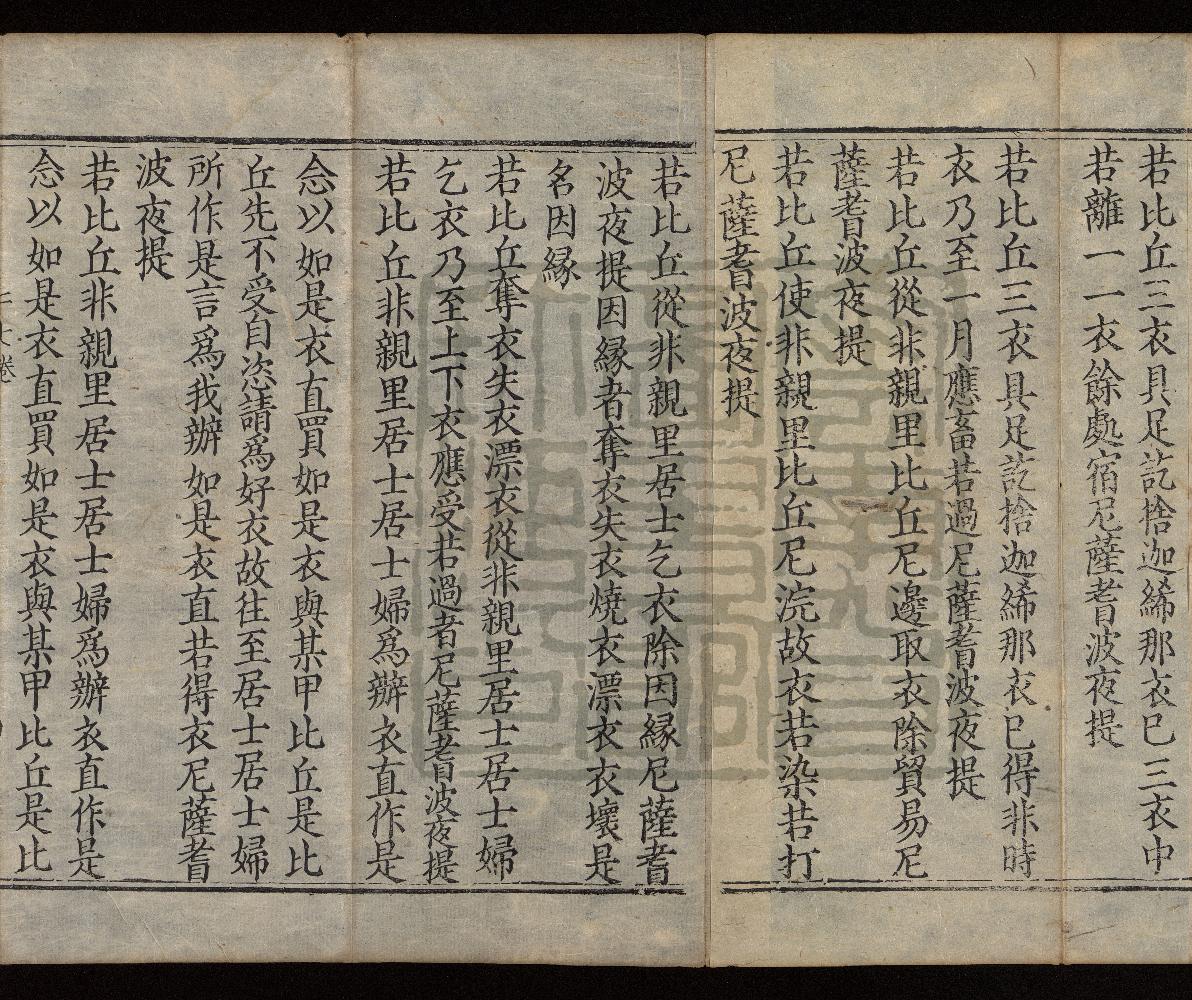 若比丘三衣具足訖捨迦絺那衣已三衣中
若離一一衣餘處宿尼薩耆波夜提
若比丘三衣具足訖捨迦絺那衣已得非時
衣乃至一月應畜若過尼薩耆波夜提
若比丘從非親里比丘尼邊取衣除貿易尼
薩耆波夜提
若比丘使非親里比丘尼浣故衣若染若打
尼薩耆波夜提
若比丘從非親里居士乞衣除因緣尼薩耆
波夜提因緣者奪衣失衣燒衣漂衣衣壞是
名因緣
若比丘奪衣失衣漂衣從非親里居士居士婦
乞衣乃至上下衣應受若過者尼薩耆波夜提
若比丘非親里居士居士婦爲辦衣直作是
念以如是衣直買如是衣與某甲比丘是比
丘先不受自恣請爲好衣故往至居士居士婦
所作是言爲我辦如是衣直若得衣尼薩耆
波夜提
若比丘非親里居士居士婦爲辦衣直作是
念以如是衣直買如是衣與某甲比丘是比